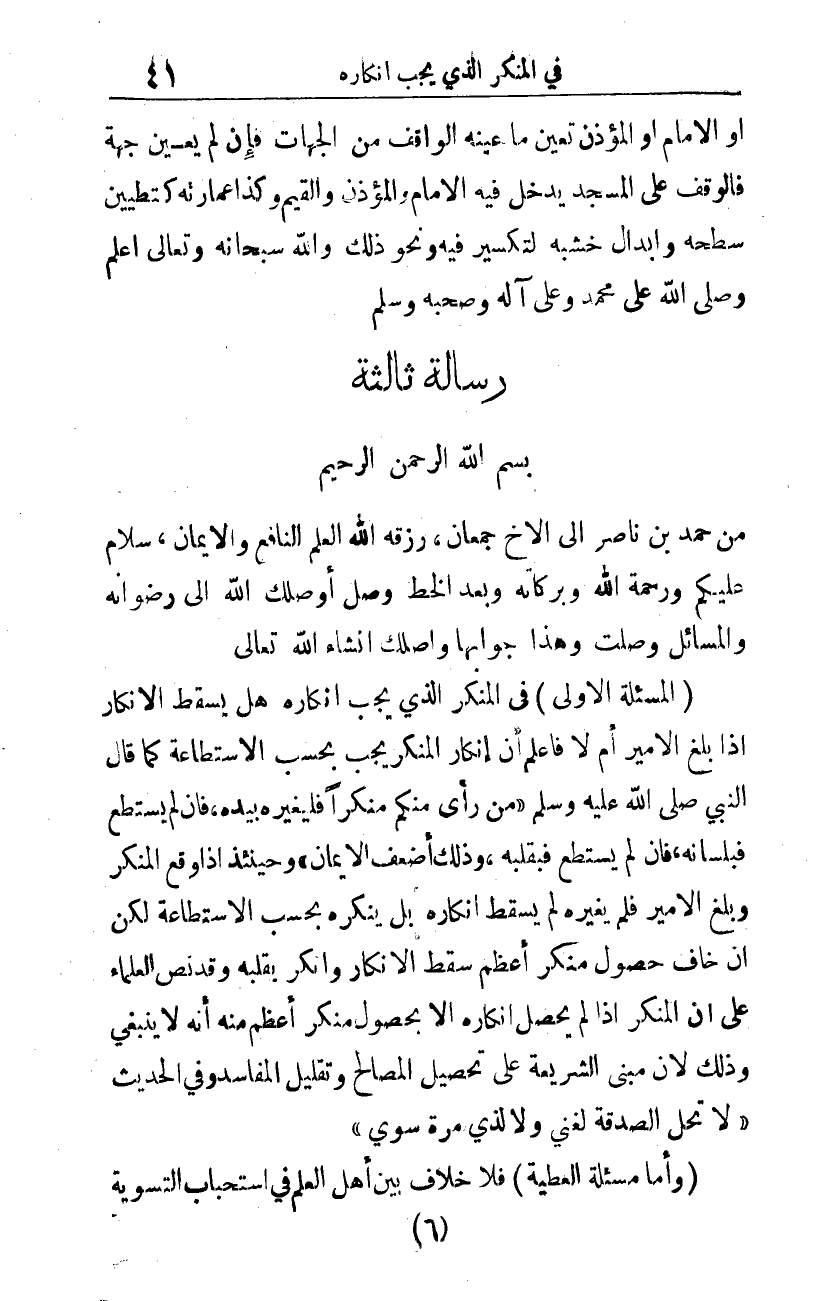 في المنكر الذي يجب انكاره ٤١
او الامام او المؤذن تعين ما عينه الواقف من الجهات فإن لم يعسين جهة
فالوقف على المسجد يدخل فيه الامام والمؤذن والقيم وكذا عمارته كتطيين
سطحه وابدال خشبه لتكسير فيه ونحو ذلك والله سبحانه وتعالى اعلم
وصلى الله على محمد وعلى آله وصحبه وسلم
رسالة ثالثة
بسم الله الرحمن الرحيم
من حمد بن ناصر الى الاخ جمعان، رزقه الله العلم النافع والايمان، سلام
عليكم ورحمة الله وبركاته وبعد الخط وصل أوصلك الله الى رضوانه
والمسائل وصلت وهذا جوابها واصلك انشاء الله تعالى
(المسئلة الاولى) فى المنكر الذي يجب انكاره هل يسقط الانكار
اذا بلغ الامير أم لا فاعلم أن إنكار المنكر يجب بحسب الاستطاعة كما قال
النبي صلى الله عليه وسلم «من رأى منكم منكراً فليغيره بيده، فان لم يستطع
فبلسانه، فان لم يستطع فبقلبه، وذلك أضعف الايمان» وحينئذ اذا وقع المنكر
وبلغ الامير فلم يغيره لم يسقط انكاره بل ينكره بحسب الاستطاعة لكن
ان خاف حصول منكر أعظم سقط الانكار وانكر بقلبه وقد نص العلماء
على ان المنكر اذا لم يحصل انكاره الا بحصول منكر أعظم منه أنه لا ينبغي
وذلك لان مبنى الشريعة على تحصيل المصالح وتقليل المفاسد وفي الحديث
«لا تحل الصدقة لغني ولا لذي مرة سوي»
(وأما مسئلة العطية) فلا خلاف بين أهل العلم في استحباب التسوية
(٦)